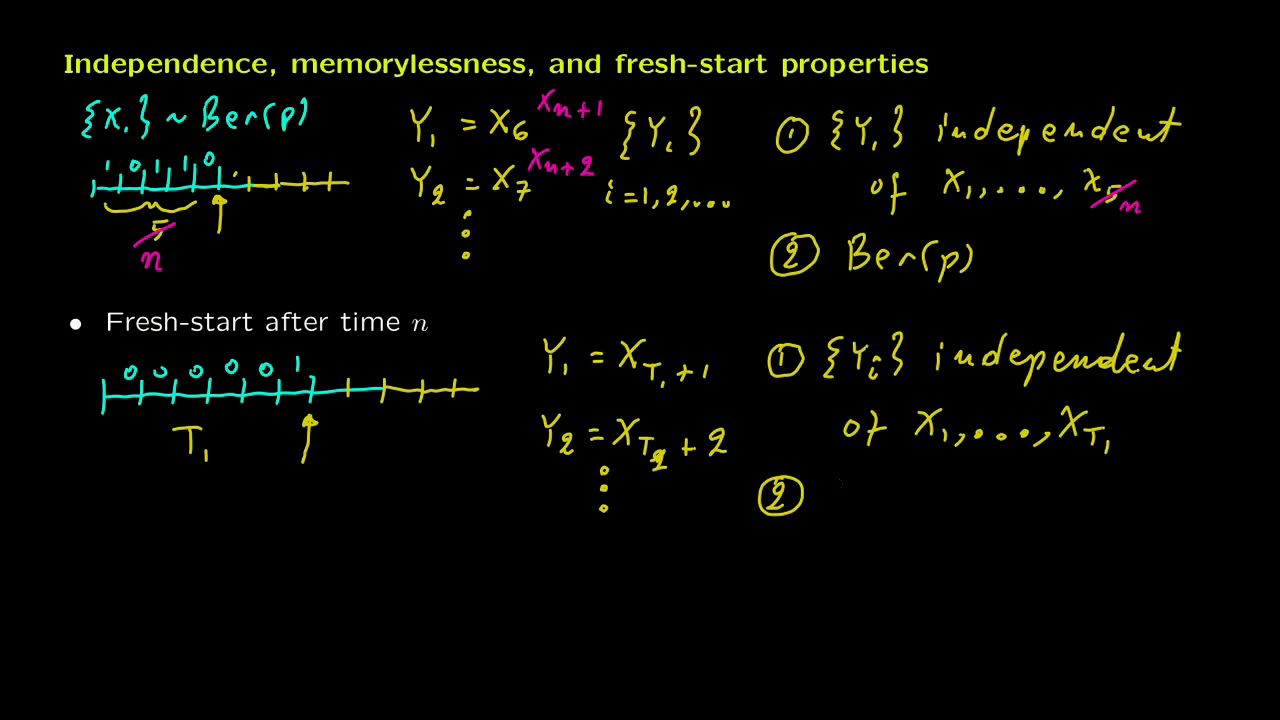 Independence, memorylessness, and fresh-start properties
{X_i} ~ Ber(p)
1 0 1 1 0
5 n
Y_1 = X_6 X_{n+1}
Y_2 = X_7 X_{n+2}
⋮
{Y_i}
i = 1, 2, ...
① {Y_i} independent
of X_1, ..., X_5 n
② Ber(p)
• Fresh-start after time n
0 0 0 0 0 1
T_1
Y_1 = X_{T_1 + 1}
Y_2 = X_{T_2 + 2}
⋮
① {Y_i} independent
of X_1, ..., X_{T_1}
②